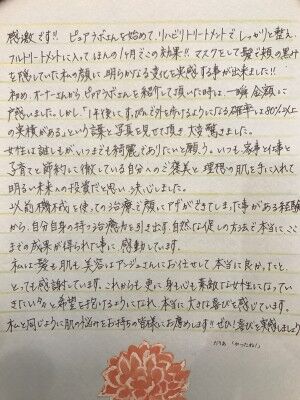 感激です!! ピュアラボさんを始めて、リハビリトリートメントでしっかりと整え、
フルトリートメントに入ってほんの1ヶ月でこの効果!! マスクをして髪で頬の黒汁
を隠していた私の顔に、明らかなる変化を実感する事が出来ました!!
初め、オーナーさんからピュアラボさんを紹介して頂いた時は、一瞬金額に
戸惑いました。しかし、「1年後にすっぴんで外を歩けるようになる確率は80%以上
の実績がある」という話と写真を見せて頂き大変驚きました。
女性は誰しもがいつまでも綺麗でありたいと願う。いつも、家事と仕事と
子育てと節約に徹している自分へのご褒美と理想の肌を手に入れて
明るい未来への投資だと思い決心しました。
以前機械を使っての治療で顔にアザができてしまった事がある経験
から、自分自身の持つ治癒力を引き出す、自然な優しい方法で本当にここ
までの成果が得られた事に、感動しています。
私は髪も肌も美容はアンジュさんにお任せして本当に良かったと、
とっても感謝しています。これからも更に身も心も素敵な女性になってい
きたい!!と希望を抱けるようになれ、本当に大きな喜びを感じています。
私と同じように肌の悩みをお持ちの皆様にお薦めします!! ぜひ!喜びを実感しましょう
「やったね!」